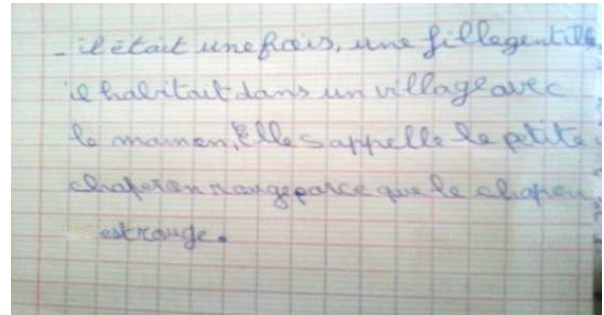 - il était une fois, une fille gentille
il habitait dans un village avec
le maman, Elle s'appelle le petite
chaperon rouge parce que le chapon
est rouge.